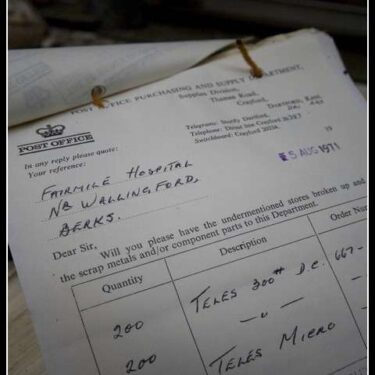 POST OFFICE PURCHASING AND SUPPLY DEPARTMENT,
Supplies Division,
Thames Road,
Crayford,
DARTFORD, Kent.
Telegrams: Sturdy Dartford,
Telephone: Direct line Crayford
Switchboard: Crayford
19
POST OFFICE
In any reply please quote:
Your reference:
5 AUG 1971
FAIRMILE HOSPITAL
NR WALLINGFORD,
BERKS.
Dear Sir,
Will you please have the undermentioned stores broken up and
the scrap metals and/or component parts to this Department.
Quantity Description Order Nu
200 TELES 300 D.C. 667-
— " —
200 TELES MICRO